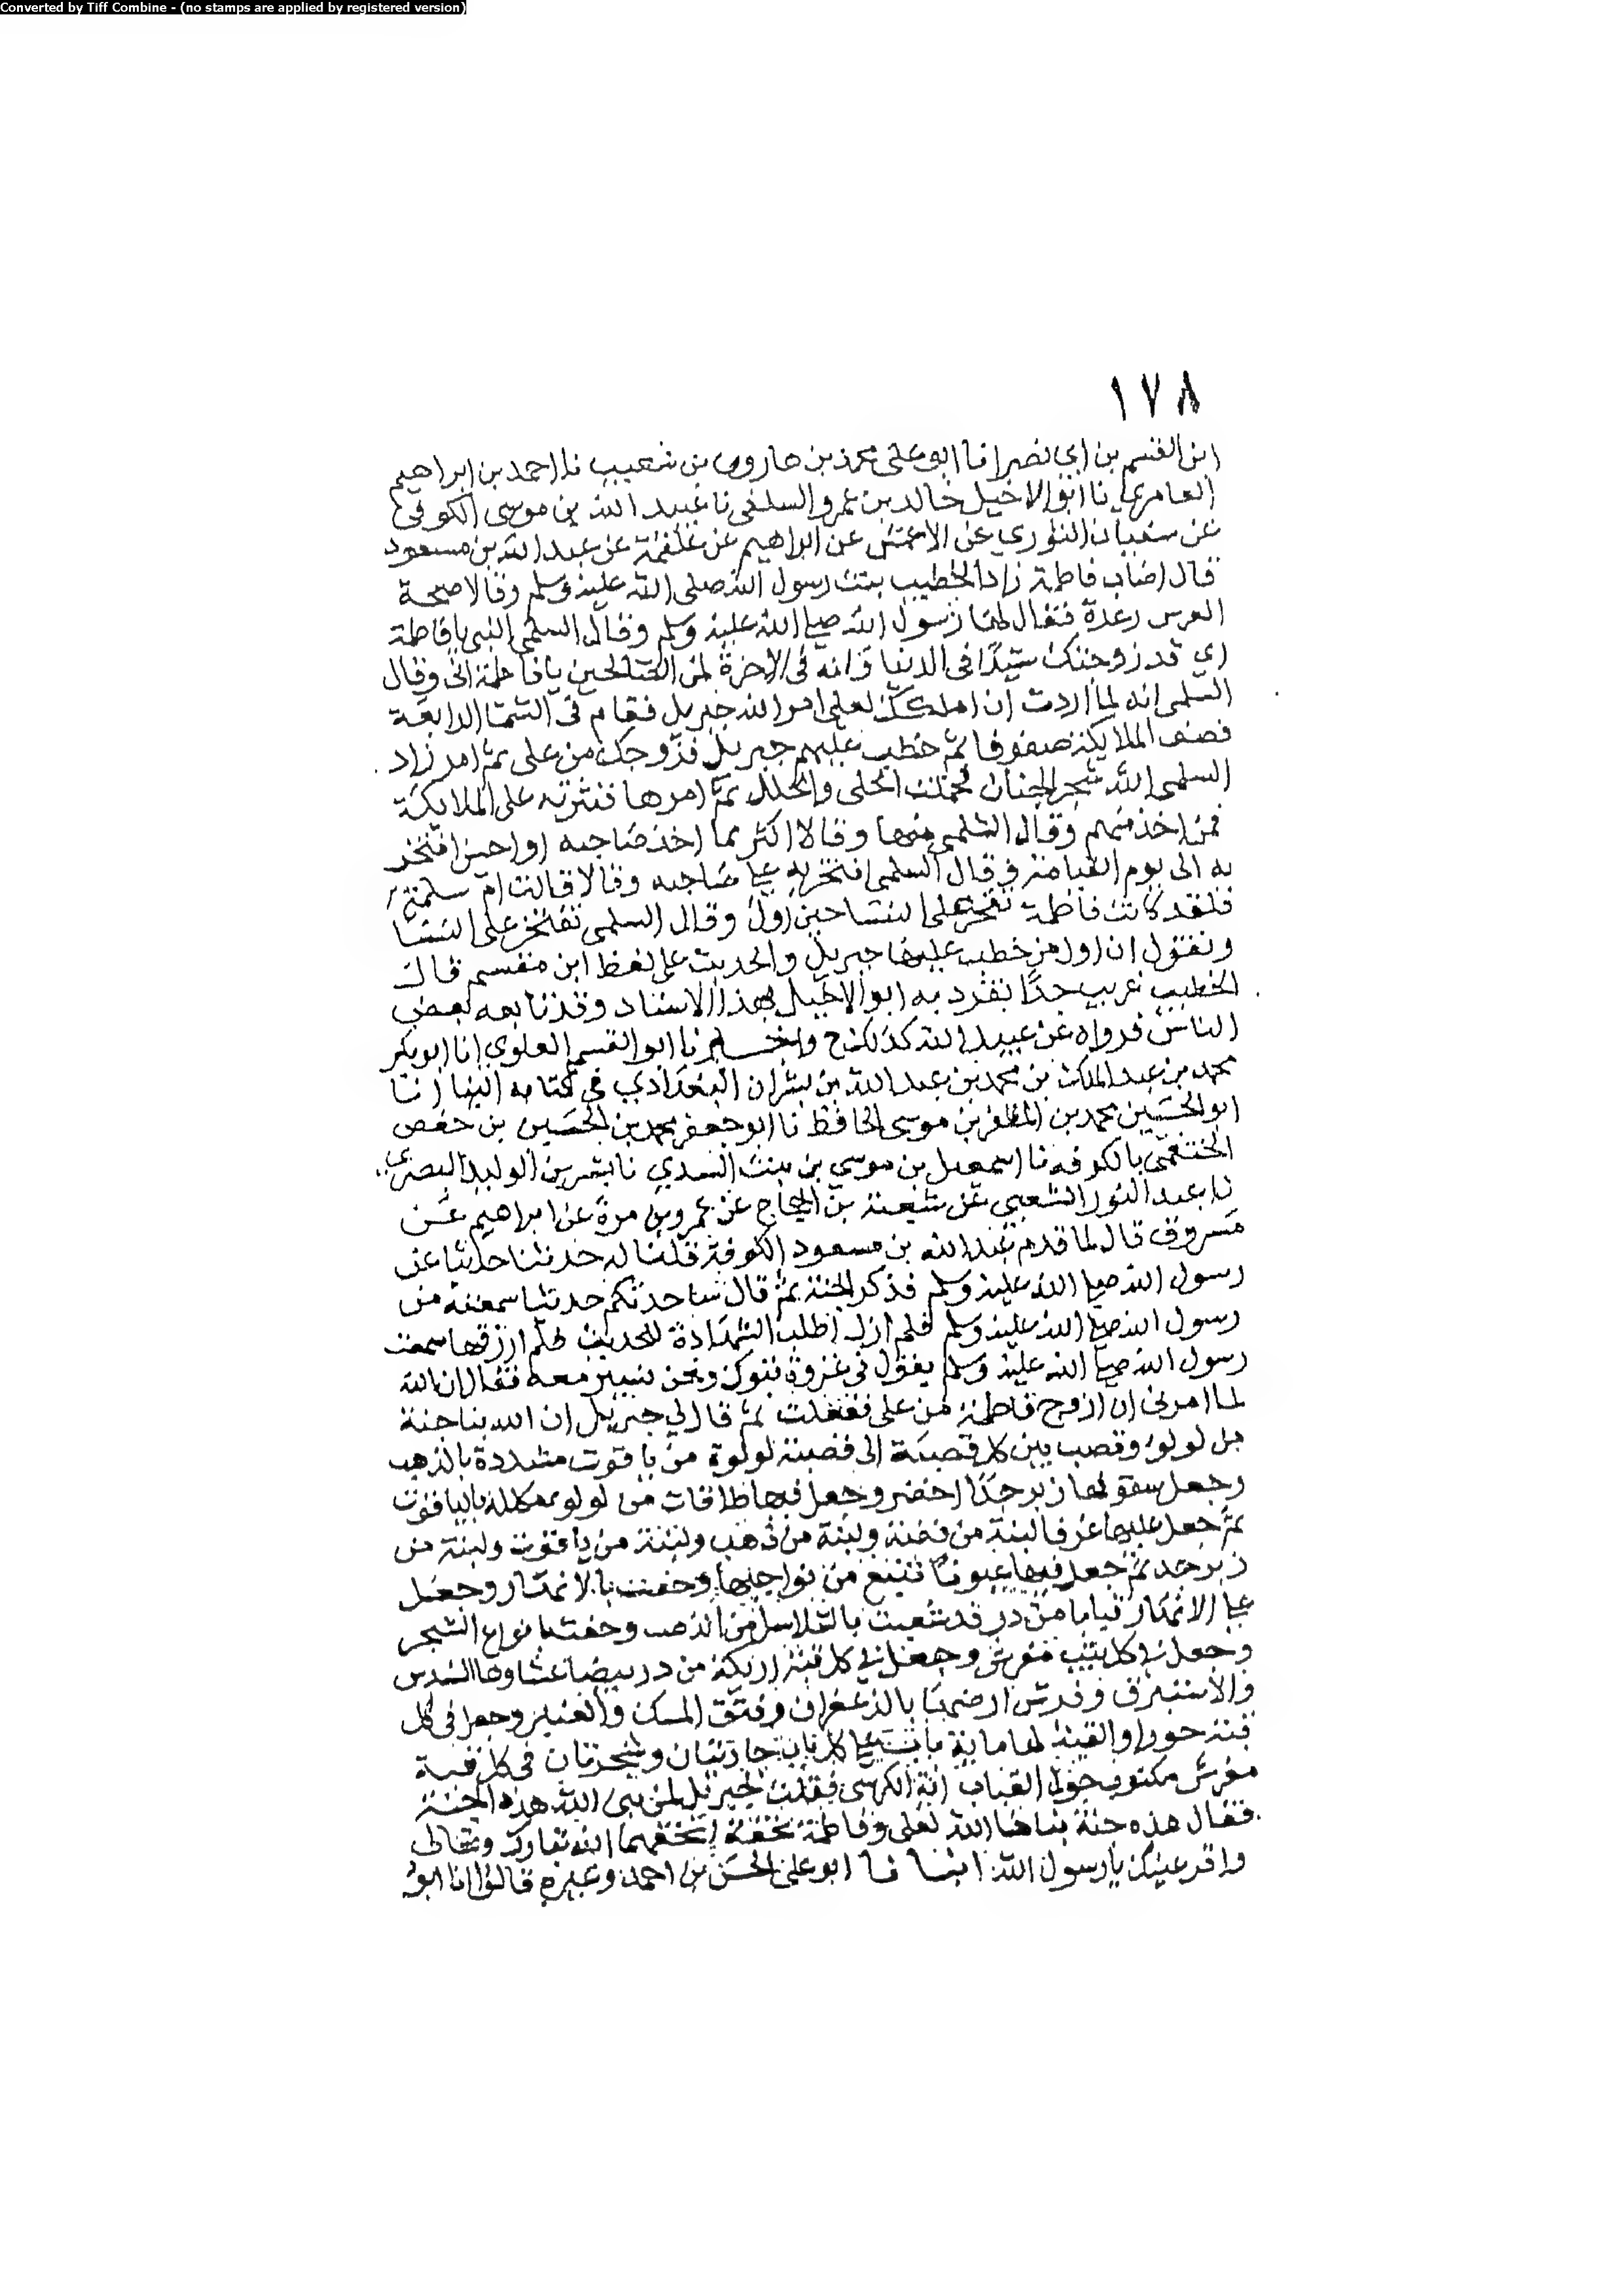 Converted by Tiff Combine - (no stamps are applied by registered version)
١٧٨
ابن القسم بن ابي نصر انا ابو على محمد بن هارون بن شعيب نا احمد بن ابراهيم
العامري نا ابو الاخيل خالد بن عمرو السلفى نا عبيد الله بن موسى الكوفى
عن سفيان الثوري عن الاعمش عن ابراهيم عن علقمة عن عبد الله بن مسعود
قال اصاب فاطمة زاد الخطيب بنت رسول الله صلى الله عليه وسلم وقالا صبيحة
العرس رعدة فقال لها رسول الله صلى الله عليه وسلم وقال السلمى النبى يا فاطمة
اي قد زوجتك سيدا فى الدنيا وانه فى الاخرة لمن الصالحين يا فاطمة انى وقال
السلمى انه لما اردت ان املكك لعلى امر الله جبريل فقام فى السما الرابعة
فصف الملايكة صفوفا ثم خطب عليهم جبريل فزوجك من على ثم امر زاد
السلمى الله شجر الجنان فحملت الحلى والحلل ثم امرها فنثرته على الملايكة
فمن اخذ منهم وقال السلمى منها وقالا اكثر مما اخذ صاحبه او احسن افتخر
به الى يوم القيامة وقال السلمى افتخر به على صاحبه وقالا قالت ام سلمة
فلقد كانت فاطمة تفتخر على النسا حين اول وقال السلمى تفتخر على النسا
وتقول ان اول من خطب عليها جبريل والحديث على لفظ ابن مقسم قال
الخطيب غريب جدا تفرد به ابو الاخيل بهذا الاسناد وقد تابعه بعض
الناس فرواه عن عبيد الله كذلك ح واخبرنا ابو القسم العلوي انا ابو بكر
محمد بن عبد الملك بن محمد بن عبد الله بن بشران البغدادي في كتابه الينا انا
ابو الحسين محمد بن المظفر بن موسى الحافظ نا ابو جعفر محمد بن الحسين بن حفص
الخثعمى بالكوفه نا اسمعيل بن موسى بن بنت السدي نا بشر بن الوليد البصري
نا عبد النور المسمعى عن شعبة بن الحجاج عن عمرو بن مرة عن ابراهيم عن
مسروق قال لما قدم عبد الله بن مسعود الكوفة قلنا له حدثنا حديثا عن
رسول الله صلى الله عليه وسلم فذكر الجنة ثم قال ساحدثكم حديثا سمعته من
رسول الله صلى الله عليه وسلم فلم ازل اطلب الشهادة للحديث فلم ارزقها سمعت
رسول الله صلى الله عليه وسلم يقول فى غزوة تبوك ونحن نسير معه فقال ان الله
لما امرنى ان ازوج فاطمة من على ففعلت ثم قال لي جبريل ان الله بنا جنة
من لولو وقصب بين كل قصبة الى قصبة لولوة من ياقوت مشددة بالذهب
وجعل سقوفها زبرجدا اخضر وجعل فيها طاقات من لولو مكللة بالياقوت
ثم جعل عليها غرفا لبنة من فضة ولبنة من ذهب ولبنة من ياقوت ولبنة من
زبرجد ثم جعل فيها عيونا تنبع من نواحيها وحفت بالانهار وجعل
على الانهار قبابا من در قد شعبت بالسلاسل من الذهب وحفت بانواع الشجر
وجعل فى كل بيت مفرش وجعل في كل قبة اريكة من در بيضا غشاوها السندس
والاستبرق وفرش ارضها بالزعفران وفتق المسك والعنبر وجعل فى كل
قبة حورا والقبة لها ماية باب على كل باب جاريتان وشجرتان فى كل قبة
مفرش مكتوب حول القباب اية الكرسى فقلت لجبريل لمن بنى الله هذه الجنة
فقال هذه جنة بناها الله لعلى وفاطمة تحفة اتحفهما الله تبارك وتعالى
واقر عينك يا رسول الله انبانا ابو على الحسن بن احمد وغيره قالوا انا ابو